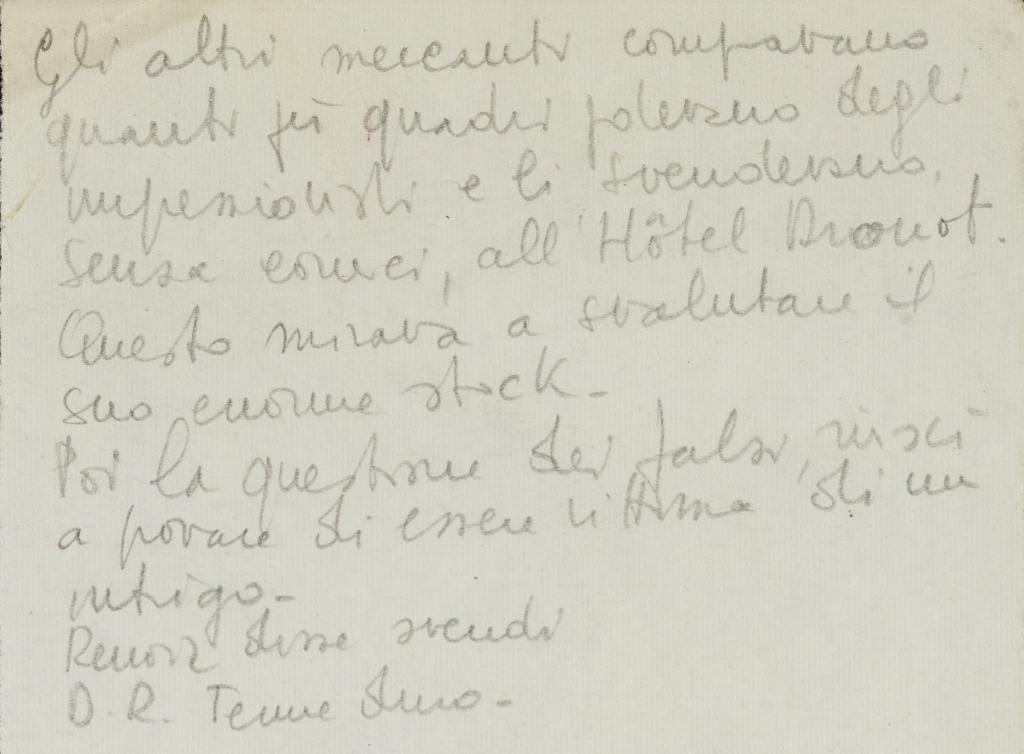 Gli altri mercanti compravano
quanti più quadri potevano degli
impressionisti e li svendevano,
senza cornici, all'Hôtel Drouot.
Questo mirava a svalutare il
suo enorme stock -
Poi la questione dei falsi, riuscì
a provare di essere vittima di un
intrigo -
Renoir disse svendi
D. R. Tenne duro -